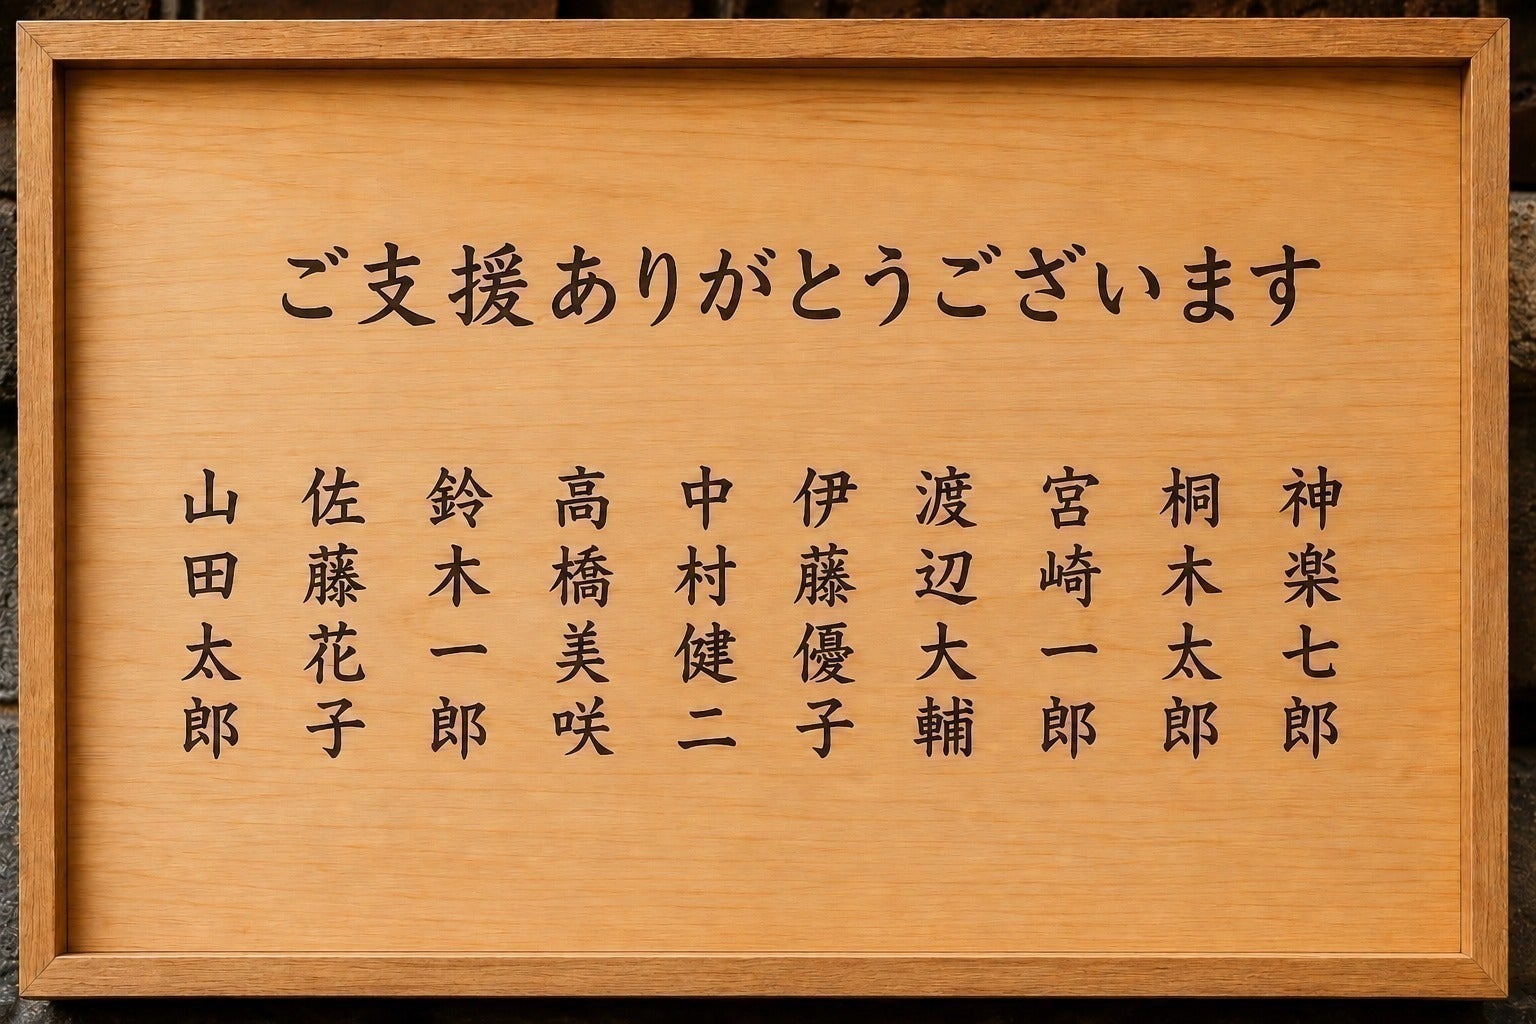 ご支援ありがとうございます
神楽七郎
桐木太郎
宮崎一郎
渡辺大輔
伊藤優子
中村健二
高橋美咲
鈴木一郎
佐藤花子
山田太郎